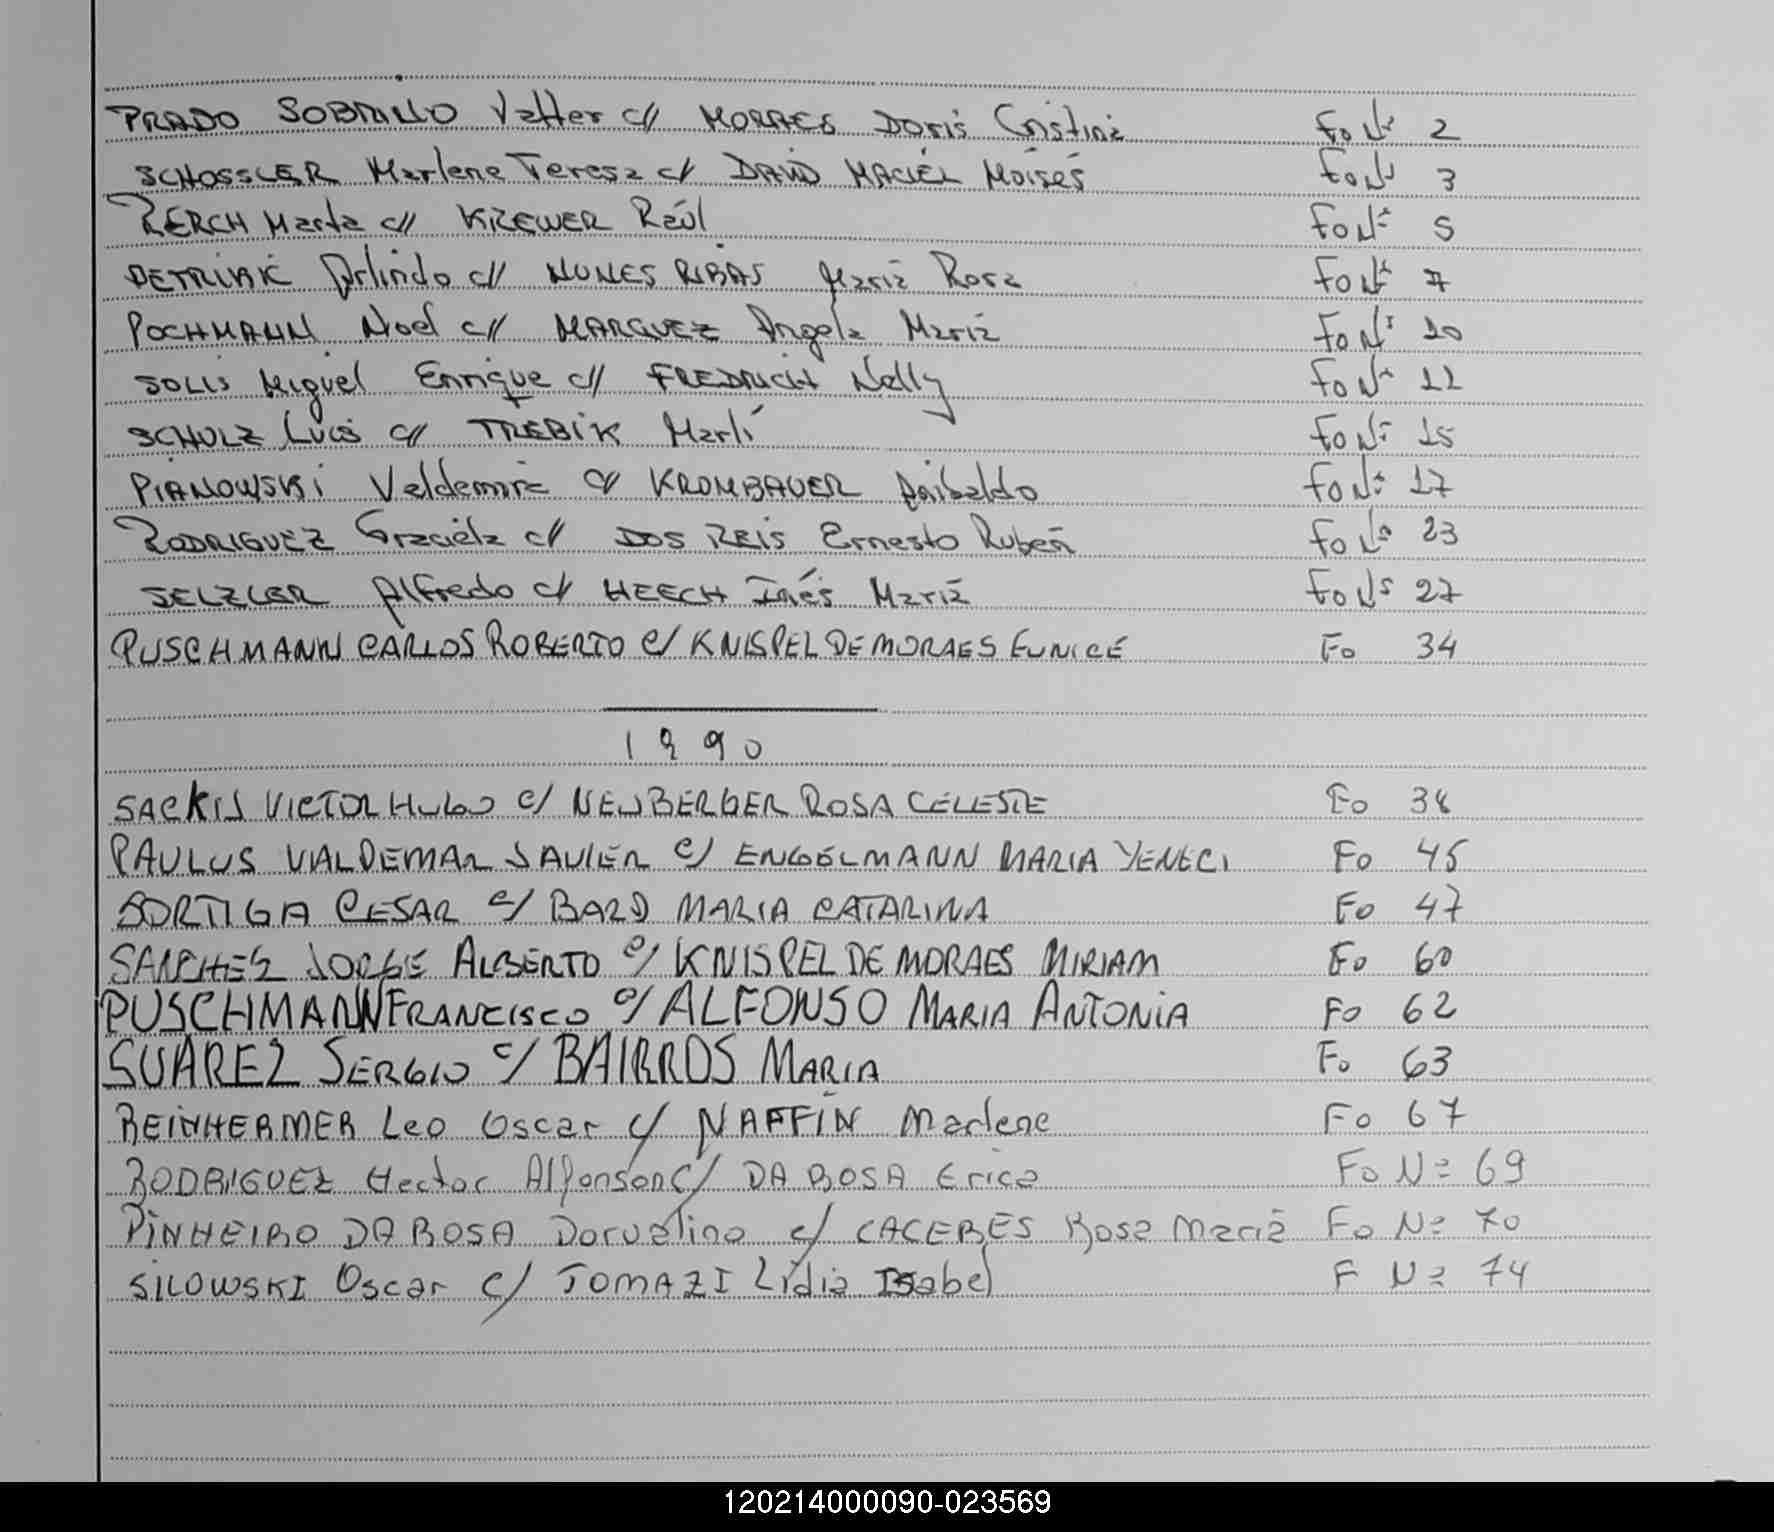 PRADO SOBRILLO Valter c// MORAES Doris Cristina Fo Nº 2
SCHOSSLER Marlene Teresa c/ DAVID MACIEL Moisés Fo Nº 3
RERCH Marta c// KREWER Raúl Fo Nº 5
PETRIVIK Arlindo c// NUNES RIBAS Maria Rosa Fo Nº 7
POCHMANN Noel c// MARQUEZ Angela Maria Fo Nº 10
SOLIS Miguel Enrique c// FREDRICH Nelly Fo Nº 11
SCHULZ Luis c// TREBIK Marlí Fo Nº 15
PIANOWSKI Valdemira c/ KROMBAUER Aribaldo Fo Nº 17
RODRIGUEZ Graciela c/ DOS REIS Ernesto Rubén Fo Nº 23
SELZLER Alfredo c/ HEECH Inés Maria Fo Nº 27
PUSCHMANN CARLOS ROBERTO c/ KNISPEL DE MORAES EUNICE Fo 34
1990
SACKIS VICTOR HUGO c/ NEUBERGER ROSA CELESTE Fo 38
PAULUS VALDEMAR JAVIER c/ ENGELMANN MARIA YENECI Fo 45
SORTIGA CESAR c/ BARD MARIA CATARINA Fo 47
SANCHEZ JORGE ALBERTO c/ KNISPEL DE MORAES MIRIAM Fo 60
PUSCHMANN FRANCISCO c/ ALFONSO MARIA ANTONIA Fo 62
SUAREZ SERGIO c/ BAIRROS MARIA Fo 63
REINHERMER Leo Oscar c/ NAFFIN Marlene Fo 67
RODRIGUEZ Hector Alfonson c/ DA ROSA Erica Fo Nº 69
PINHEIRO DA ROSA Dorvalino c/ CACERES Rosa Maria Fo Nº 70
SILOWSKI Oscar c/ TOMAZI Lidia Isabel F Nº 74
120214000090-023569